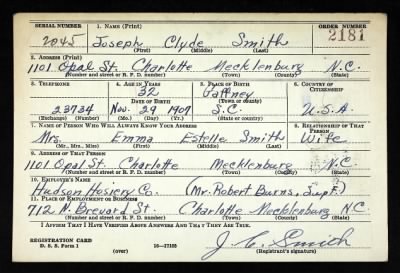 SERIAL NUMBER 1. NAME (Print) ORDER NUMBER
2045 Joseph Clyde Smith 2181
(First) (Middle) (Last)
2. ADDRESS (Print)
1101 Opal St. Charlotte Mecklenburg N.C.
(Number and street or R. F. D. number) (Town) (County) (State)
3. TELEPHONE 4. AGE IN YEARS 5. PLACE OF BIRTH 6. COUNTRY OF CITIZENSHIP
32 Gaffney
DATE OF BIRTH (Town or county)
23734 Nov. 29 1907 S.C. U.S.A.
(Exchange) (Number) (Mo.) (Day) (Yr.) (State or country)
7. NAME OF PERSON WHO WILL ALWAYS KNOW YOUR ADDRESS 8. RELATIONSHIP OF THAT PERSON
Mrs. Emma Estelle Smith Wife
(Mr., Mrs., Miss) (First) (Middle) (Last)
9. ADDRESS OF THAT PERSON
1101 Opal St. Charlotte Mecklenburg N.C.
(Number and street or R. F. D. number) (Town) (County) (State)
10. EMPLOYER'S NAME
Hudson Hosiery Co. (Mr. Robert Burns, Supt.)
11. PLACE OF EMPLOYMENT OR BUSINESS
712 N. Brevard St. Charlotte Mecklenburg N.C.
(Number and street or R. F. D. number) (Town) (County) (State)
I AFFIRM THAT I HAVE VERIFIED ABOVE ANSWERS AND THAT THEY ARE TRUE.
J. C. Smith
REGISTRATION CARD
D. S. S. Form 1 (over) 16—17105 (Registrant's signature)